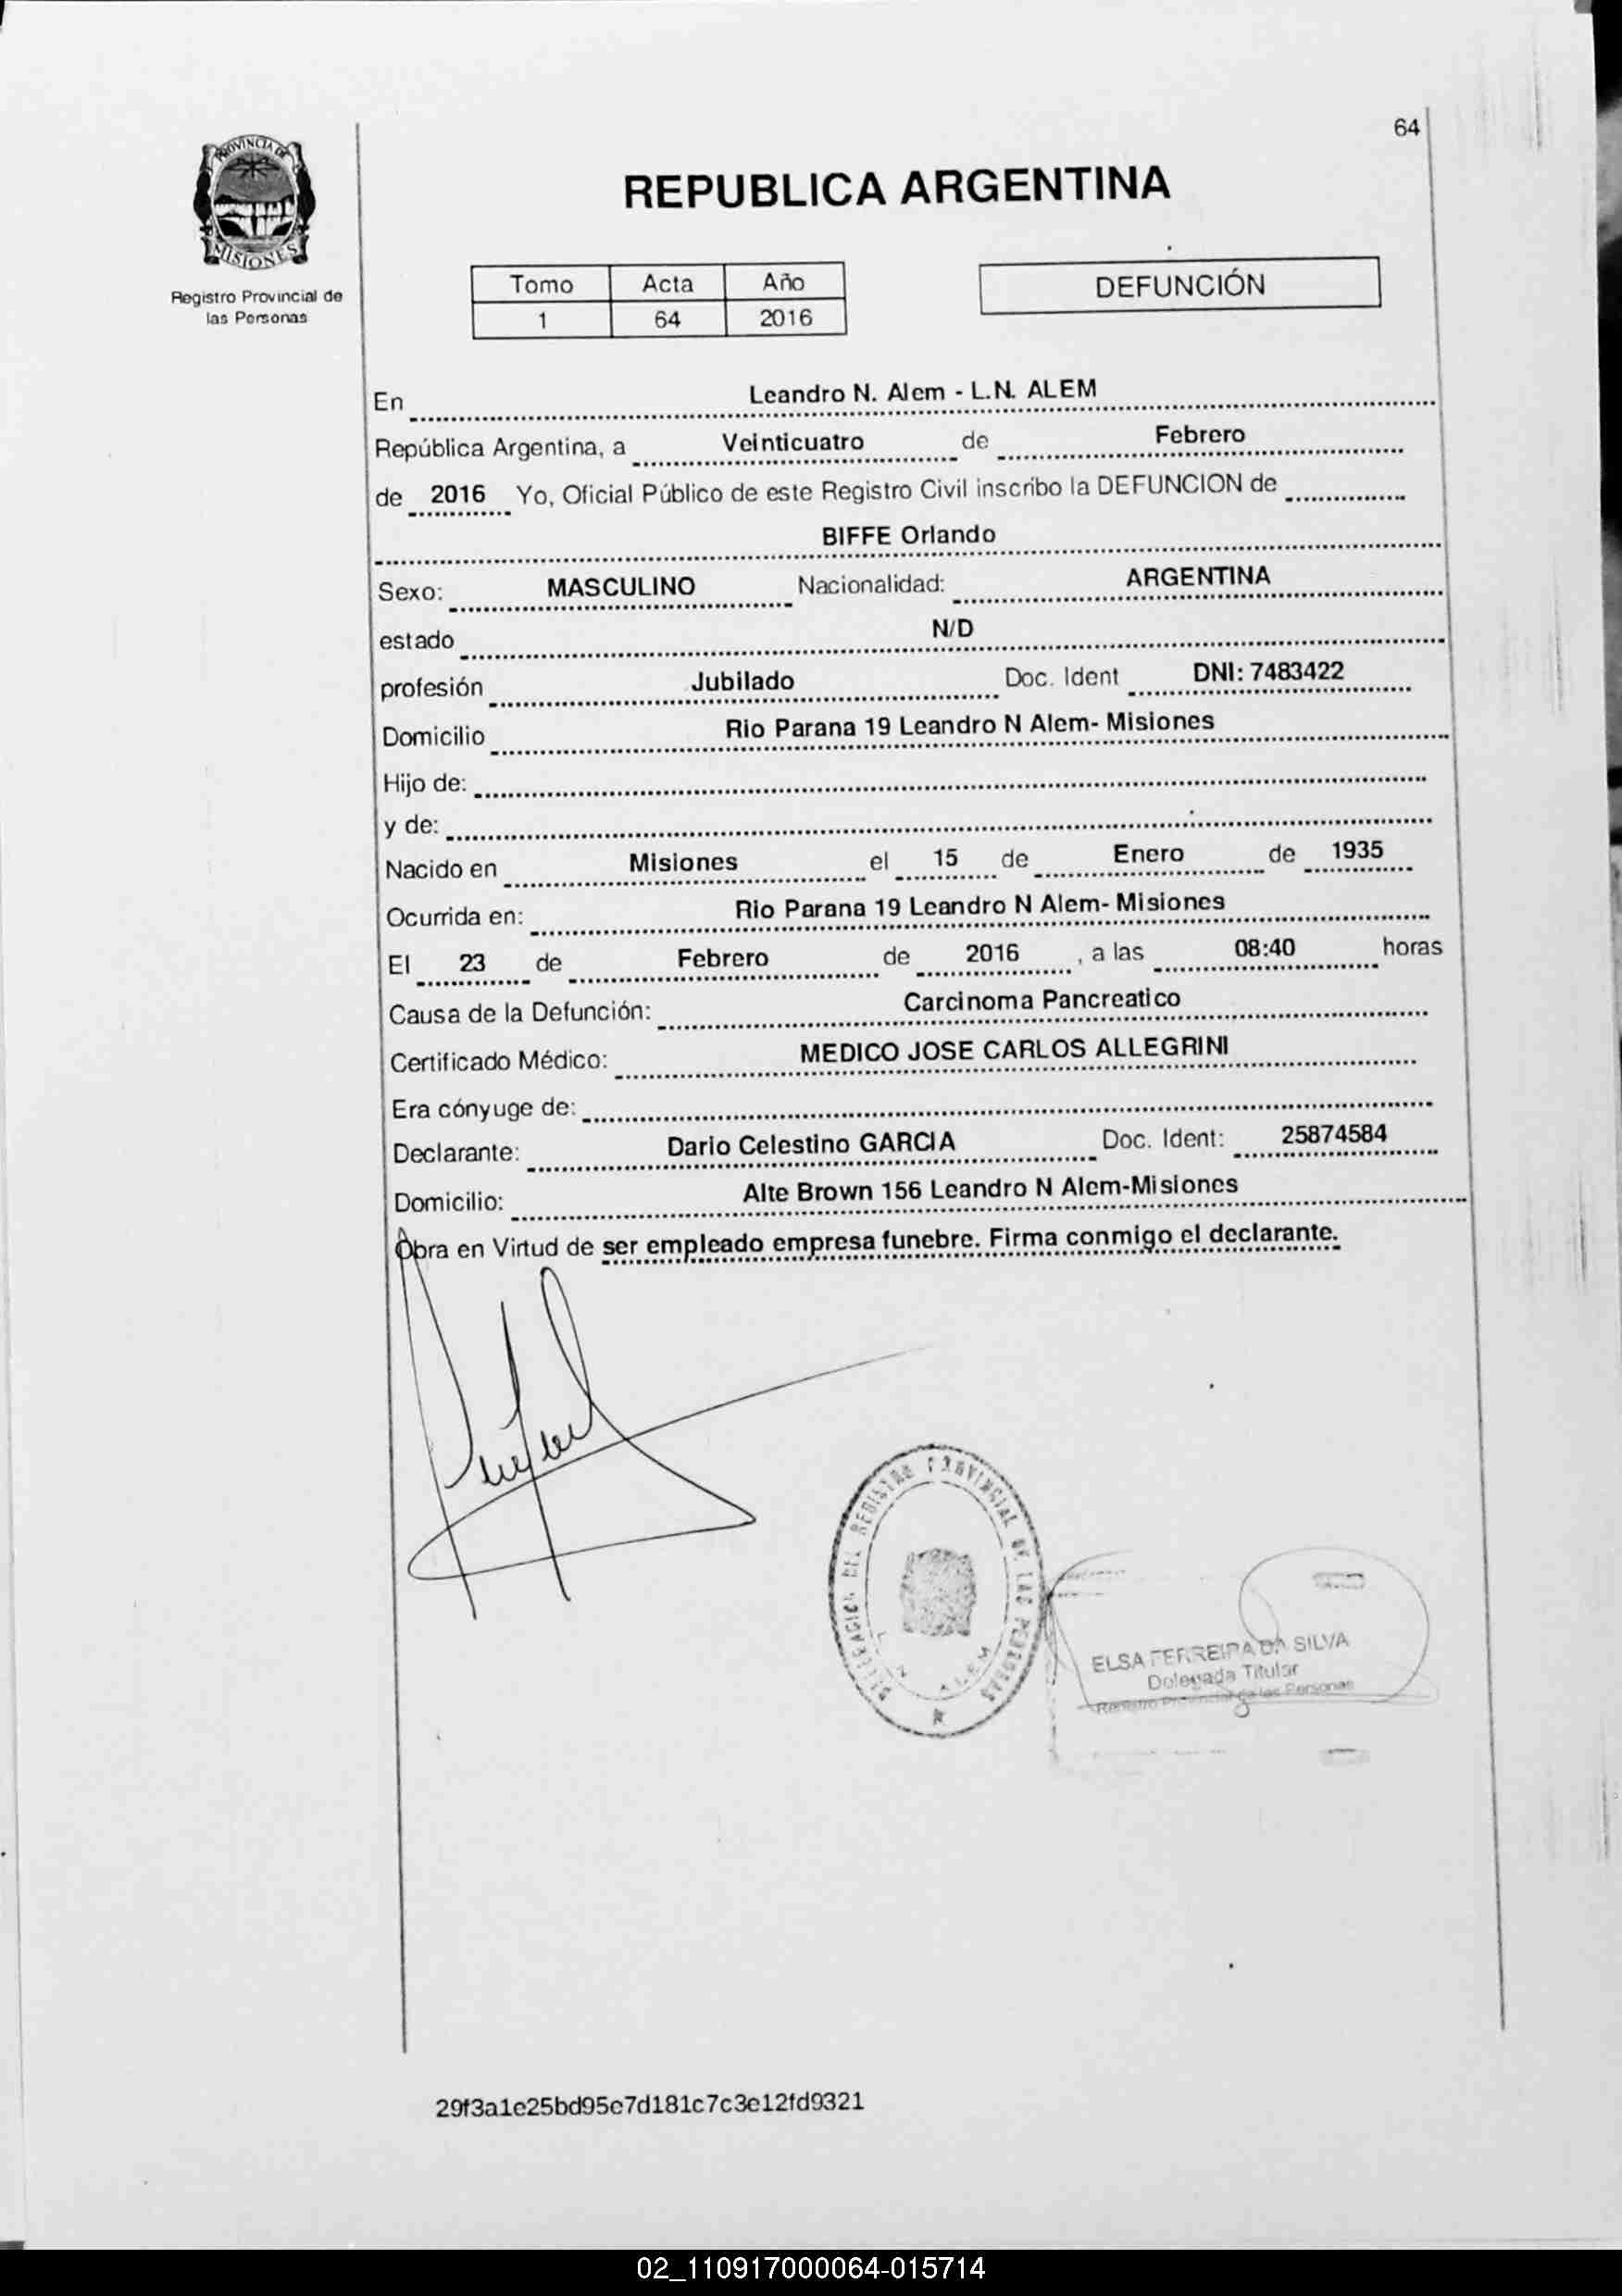 64
PROVINCIA DE
MISIONES
Registro Provincial de
las Personas
REPUBLICA ARGENTINA
Tomo Acta Año
1 64 2016
DEFUNCIÓN
En Leandro N. Alem - L.N. ALEM
República Argentina, a Veinticuatro de Febrero
de 2016 Yo, Oficial Público de este Registro Civil inscribo la DEFUNCION de
BIFFE Orlando
Sexo: MASCULINO Nacionalidad: ARGENTINA
estado N/D
profesión Jubilado Doc. Ident DNI: 7483422
Domicilio Rio Parana 19 Leandro N Alem- Misiones
Hijo de:
y de:
Nacido en Misiones el 15 de Enero de 1935
Ocurrida en: Rio Parana 19 Leandro N Alem- Misiones
El 23 de Febrero de 2016 , a las 08:40 horas
Causa de la Defunción: Carcinoma Pancreatico
Certificado Médico: MEDICO JOSE CARLOS ALLEGRINI
Era cónyuge de:
Declarante: Dario Celestino GARCIA Doc. Ident: 25874584
Domicilio: Alte Brown 156 Leandro N Alem-Misiones
Obra en Virtud de ser empleado empresa funebre. Firma conmigo el declarante.
DELEGACION DEL REGISTRO PROVINCIAL DE LAS PERSONAS
L. N. ALEM
ELSA FERREIRA DA SILVA
Delegada Titular
Registro Provincial de las Personas
29f3a1e25bd95e7d181c7c3e12fd9321
02_110917000064-015714